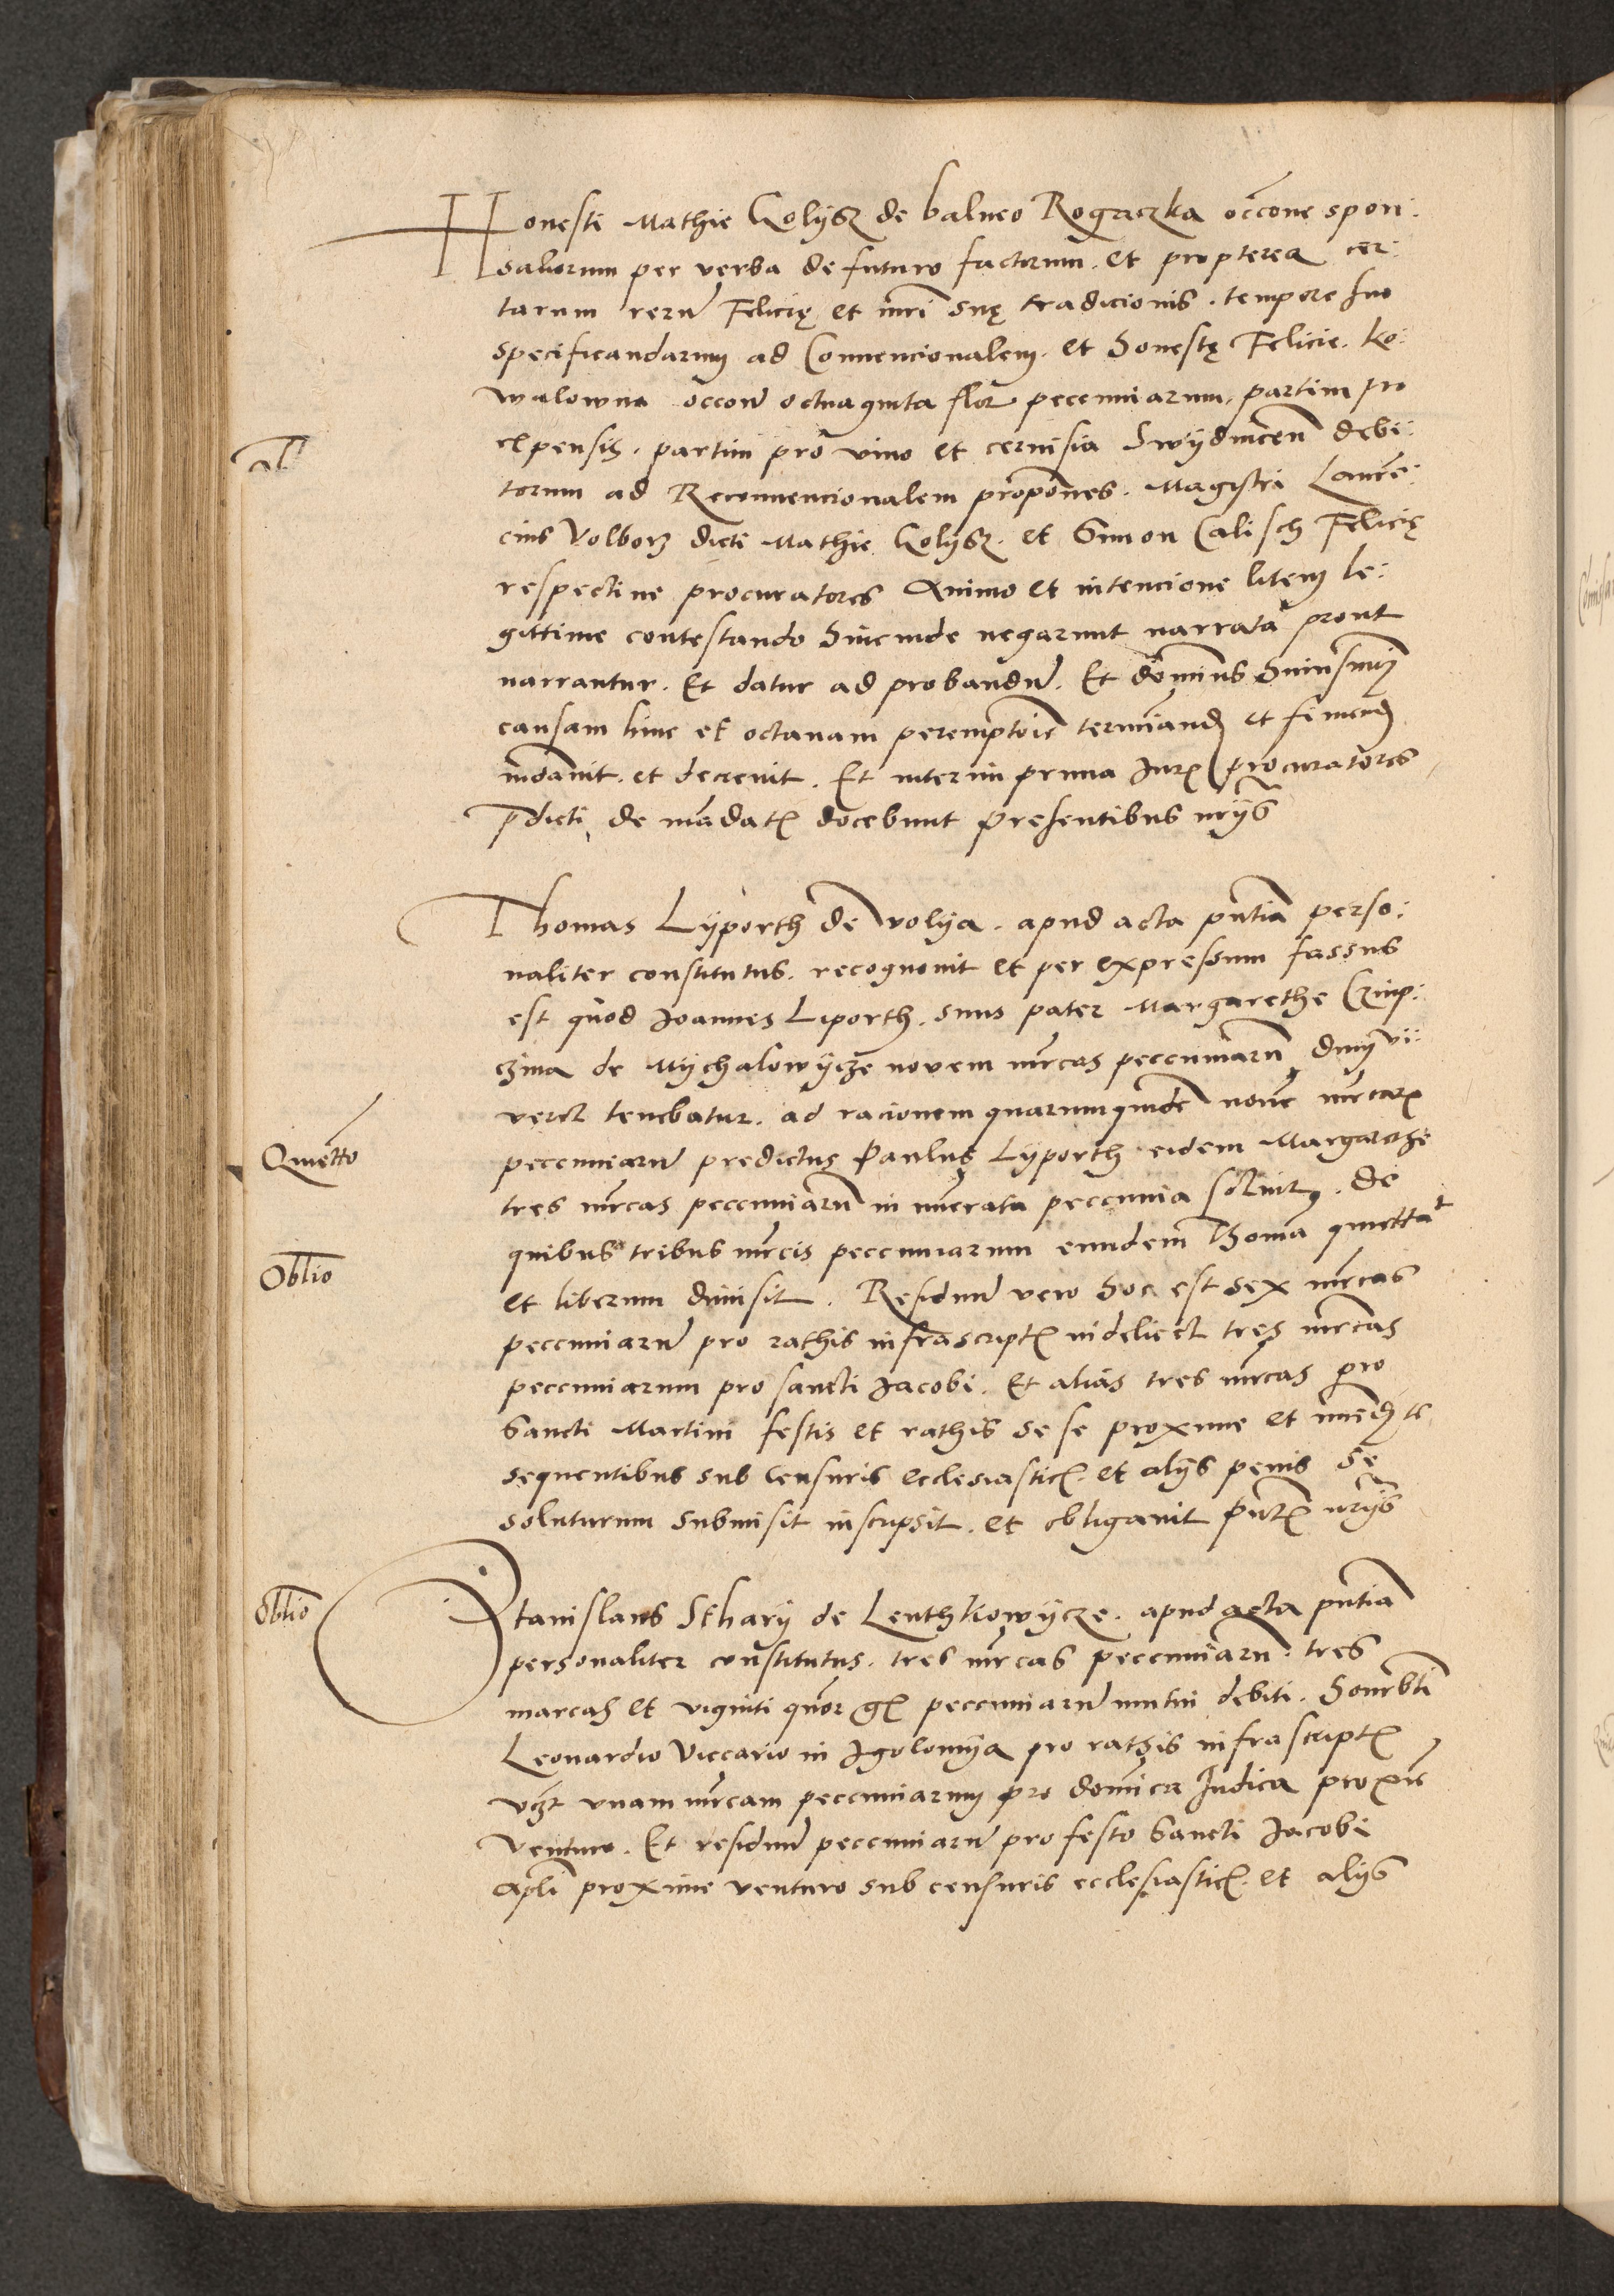 Honesti Mathie Kolysz de balneo Rogaczka occone spon:
saliorum per verba de futuro factorum. et propterea cer:
tarum rerum Felicię et mri suę tradicionis. tempore suo
specificandarum ad Convencionalem. et Honestę Felicie. Ko:
walowna occone octuaginta flor peccuniarum, partim pro
expensis. partim pro vino et cervisia Swydnicen debi:
torum ad Reconvencionalem propones. Magistri Lauren:
cius Volborz dicti Mathie Kolysz. et Simon Calisch Felicię
respective procuratores Animo et intencione litem le:
gittime contestando Hincinde negarunt narrata prout
narrantur. Et datur ad probandum. Et dominus Huiusmodi
causam hinc et octavam peremptorie terminand et finiend
mdavit. et decrevit. Et interim prima Juris procuratores
pdicti de mandatis docebunt presentibus nrys
Thomas Lyporth de Volya. apud acta pntia perso:
naliter constitutus. recognovit et per expressum fassus
est quod Joannes Liporth. suus pater Margarethe Czup:
czina de Mychalowycze novem mrcas peccuniarum dum vi:
veret tenebatur. ad racionem quarumquidem novem mrcarum
Quietto
peccuniarum predictus Paulus Lyporth eidem Margarethe
tres mrcas peccuniarum in numerata peccunia solvit. de
quibus tribus mrcis peccuniarum eundem Thomam quittat
Oblio
et liberum dimisit. Residuum vero hoc est sex mrcas
peccuniarum pro rathis infrascriptis videlicet tres mrcas
peccuniarum pro sancti Jacobi. Et alias tres mrcas pro
Sancti Martini festis et rathis se se proxime et immediate
sequentibus sub censuris ecclesiasticis. et alys penis se
soluturum submisit inscripsit. et obligavit pntibus nrys
Oblio
Stanislaus Sthary de Lenthkowycze. apud acta pntia
personaliter constitutus. tres mrcas peccuniarum. tres
marcas et viginti quatuor gr peccuniarum mutui debiti. Honorabli
Leonardo Viccario in Igolomya pro rathis infrascriptis
vczt unam mrcam peccuniarum pro dominica Judica proxime
ventura. Et residuum peccuniarum pro festo Sancti Jacobi
Apli proxime venturo sub censuris ecclesiasticis. et alys